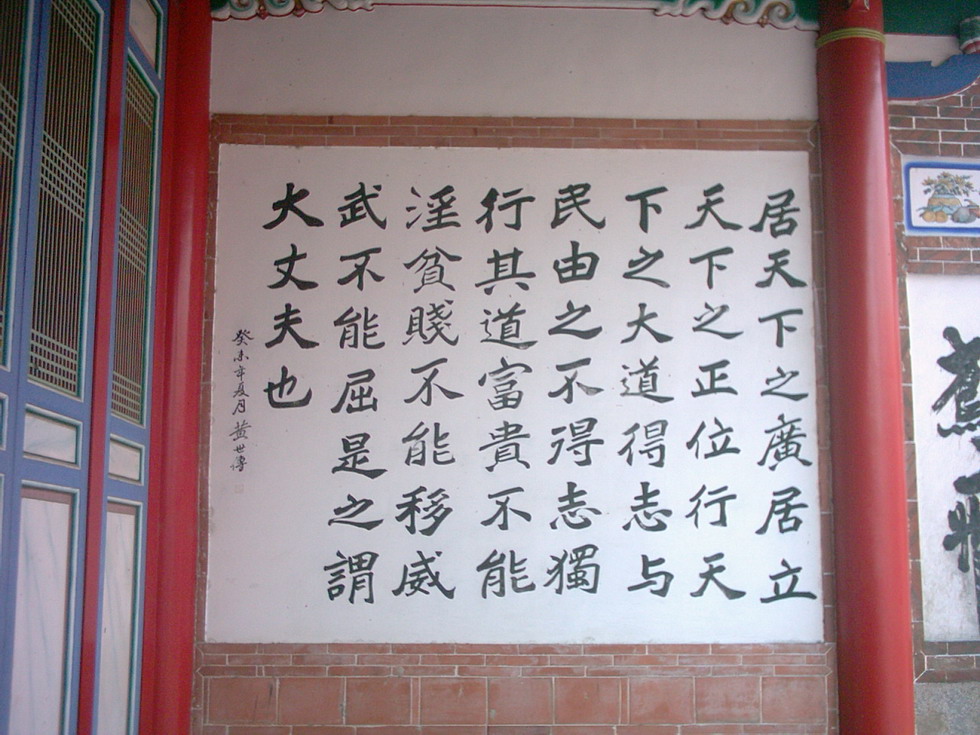 居天下之廣居立
天下之正位行天
下之大道得志与
民由之不得志獨
行其道富貴不能
淫貧賤不能移威
武不能屈是之謂
大丈夫也
癸未年夏月黃世傳